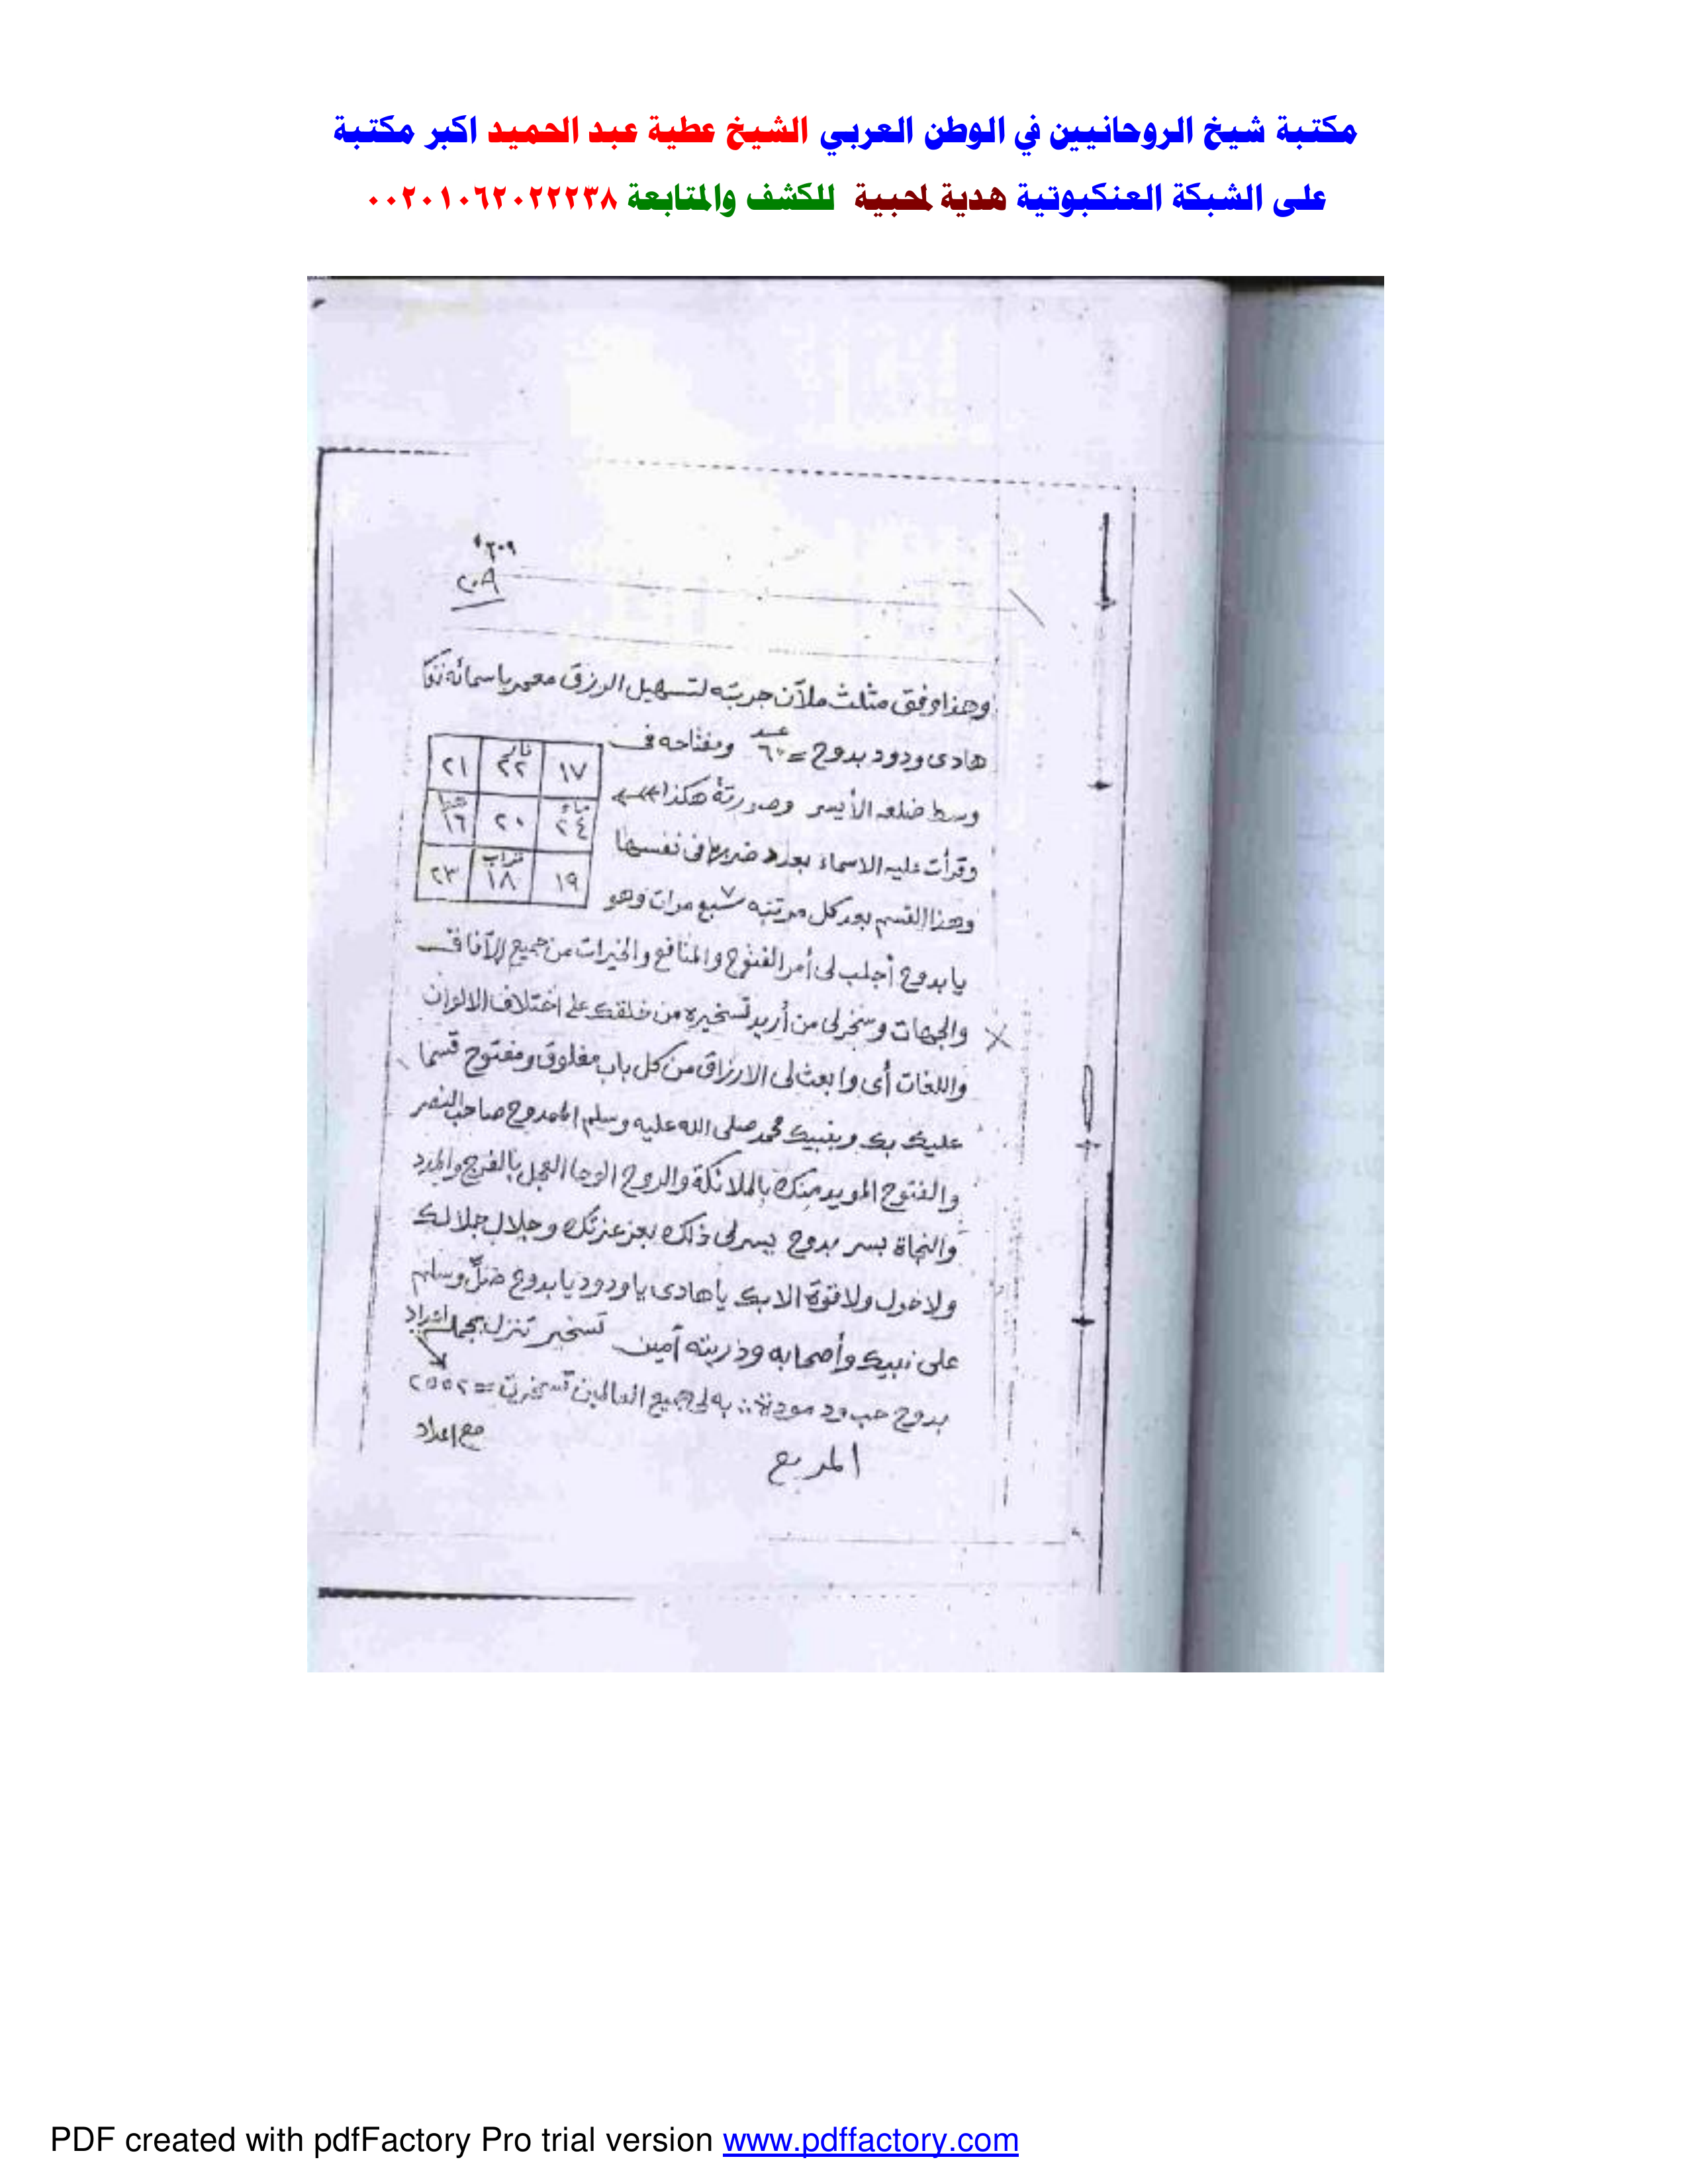 مكتبة شيخ الروحانيين في الوطن العربي الشيخ عطية عبد الحميد اكبر مكتبة
على الشبكة العنكبوتية هدية لمحبية للكشف والمتابعة ٠٠٢٠١٠٦٢٠٢٢٢٣٨
٢٠٩
٢٠٨
وهذا وفق مثلث ملآن جربته لتسهيل الرزق معمر باسمائه
هادى ودود بدوح = ٦٠ ومفتاحه فى
وسط ضلعه الأيسر وصورته هكذا
١٧ نار ٢٢ ٢١
ماء ٢٤ ٢٠ هوا ١٦
١٩ تراب ١٨ ٢٣
وقرأت عليه الاسماء بعدد ضربها فى نفسها
وهذا القسم بعد كل مرتبه سبع مرات وهو ٧
يا بدوح أجلب لى أمر الفتوح والمنافع والخيرات من جميع الآفاق
والجهات وسخر لى من أريد تسخيره من خلقك على اختلاف الالوان
واللغات أى وابعث لى الارزاق من كل باب مغلوق ومفتوح قسما
عليك بك وبنبيك محمد صلى الله عليه وسلم الممدوح صاحب النصر
والفتوح المويد منك بالملائكة والروح الوحا العجل بالفرج والمدد
والنجاة بسر بدوح يسر لى ذلك بعز عزتك وجلال جلالك
ولا حول ولا قوة الا بك يا هادى يا ودود يا بدوح صل وسلم
على نبيك وأصحابه وذريته آمين تسخير تنزل بجملة
بدوح حب ود مودة به لى جميع العالمين تسخرت = ٢٥٥٢
مع اعداد
المربع
PDF created with pdfFactory Pro trial version www.pdffactory.com